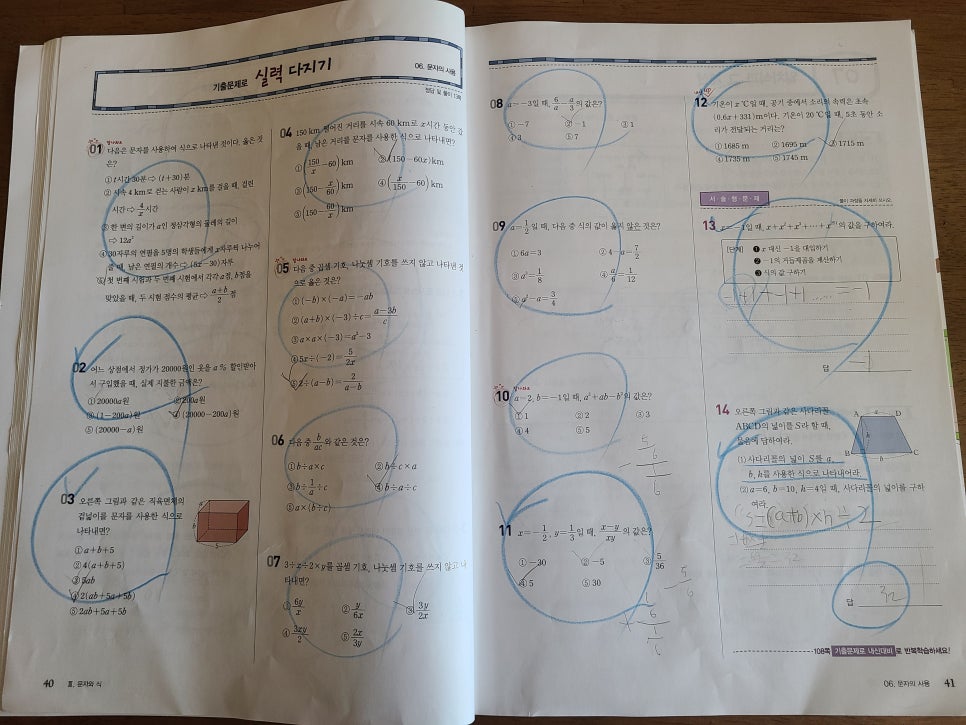 기출문제로 실력 다지기
06. 문자의 사용
정답 및 풀이 13쪽
01 다음은 문자를 사용하여 식으로 나타낸 것이다. 옳은 것
은?
① t시간 30분 ⇨ (t+30)분
② 시속 4 km로 걷는 사람이 x km를 걸을 때, 걸린
시간 ⇨ 4/x시간
③ 한 변의 길이가 a인 정삼각형의 둘레의 길이
⇨ 12a²
④ 30자루의 연필을 5명의 학생들에게 x자루씩 나누어
줄 때, 남은 연필의 개수 ⇨ (5x-30)자루
⑤ 첫 번째 시험과 두 번째 시험에서 각각 a점, b점을
맞았을 때, 두 시험 점수의 평균 ⇨ (a+b)/2점
02 어느 상점에서 정가가 20000원인 옷을 a % 할인받아
서 구입했을 때, 실제 지불한 금액은?
① 20000a원 ② 200a원
③ (1-200a)원 ④ (20000-200a)원
⑤ (20000-a)원
03 오른쪽 그림과 같은 직육면체의
겉넓이를 문자를 사용한 식으로
나타내면?
5
① a+b+5
② 4(a+b+5)
③ 5ab
④ 2(ab+5a+5b)
⑤ 2ab+5a+5b
40 Ⅲ. 문자와 식
04 150 km 떨어진 거리를 시속 60 km로 x시간 동안 갔
을 때, 남은 거리를 문자를 사용한 식으로 나타내면?
① (150/x-60) km ② (150-60x) km
③ (150-x/60) km ④ (x/150-60) km
⑤ (150-60/x) km
05 다음 중 곱셈 기호, 나눗셈 기호를 쓰지 않고 나타낸 것
으로 옳은 것은?
① (-b)×(-a)=-ab
② (a+b)×(-3)÷c=(a-3b)/c
③ a×a×(-3)=a²-3
④ 5x÷(-2)=5/2x
⑤ 2÷(a-b)=2/(a-b)
06 다음 중 b/ac와 같은 것은?
① b÷a×c ② b÷c×a
③ b÷1/a÷c ④ b÷a÷c
⑤ a×(b÷c)
07 3÷x÷2×y를 곱셈 기호, 나눗셈 기호를 쓰지 않고 나
타내면?
① 6y/x ② y/6x ③ 3y/2x
④ 3xy/2 ⑤ 2x/3y
08 a=-3일 때, 6/a-a/3의 값은?
① -7 ② -1 ③ 1
④ 3 ⑤ 7
09 a=1/2일 때, 다음 중 식의 값이 옳지 않은 것은?
① 6a=3 ② 4-a=7/2
③ a³=1/8 ④ a/6=1/12
⑤ a²-a=3/4
10 a=2, b=-1일 때, a²+ab-b²의 값은?
① 1 ② 2 ③ 3
④ 4 ⑤ 5
11 x=-1/2, y=1/3일 때, (x-y)/xy의 값은?
① -30 ② -5 ③ 5/36
④ 5 ⑤ 30
12 기온이 x ℃일 때, 공기 중에서 소리의 속력은 초속
(0.6x+331) m이다. 기온이 20 ℃일 때, 5초 동안 소
리가 전달되는 거리는?
① 1685 m ② 1695 m ③ 1715 m
④ 1735 m ⑤ 1745 m
서·술·형·문·제
풀이 과정을 자세히 쓰시오.
13 x=-1일 때, x+x²+x³+⋯+x⁹⁹의 값을 구하여라.
[단계] ❶ x 대신 -1을 대입하기
❷ -1의 거듭제곱을 계산하기
❸ 식의 값 구하기
-1+1+-1+1 ...... = -1
답 -1
14 오른쪽 그림과 같은 사다리꼴
ABCD의 넓이를 S라 할 때,
물음에 답하여라.
A a D
h
B b C
(1) 사다리꼴의 넓이 S를 a,
b, h를 사용한 식으로 나타내어라.
(2) a=6, b=10, h=4일 때, 사다리꼴의 넓이를 구하
여라.
S=(a+b)×h÷2
답 32
108쪽 기출문제로 내신대비로 반복학습하세요!
06. 문자의 사용 41